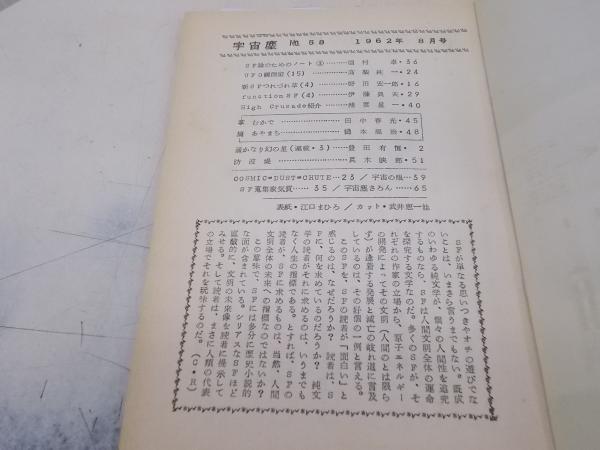 宇宙塵 № 58 1962年 8月号
SF論のためのノート③ 卓・36
UFO観測記(15) 高梨純一・24
新SFつれづれ草(4) 野田宏一郎・16
functionSF(4) 伊藤典夫・29
High Crusade紹介 ・40
掌 むかで 田中春光・45
編 あやまち ・48
遥かなり幻の星(連載・3) 豊田有恒・2
防波堤 眞木映郎・51
COSMIC=DUST=CHUTE 23/宇宙の塵 39
SF蒐集家気質 35/宇宙塵さろん 65
表紙・江口まひろ/カット・武井恵一他
SFが単なる思いつきやオチの遊びでな
いことは、いまさら言うまでもない。既成
のいわゆる純文学が、個々の人間性を追究
するものなら、SFは人間文明全体の運命
を探究する文学なのだ。多くのSFが、そ
れぞれの作家の立場から、原子エネルギー
の開発によってその文明(人間のとは限ら
ず)が逢着する発展と滅亡の岐れ道に言及
しているのは、その好個の一例と言える。
このSFを、SFの読者が「面白い」と
感じるのは、なぜだろうか? 読者は、S
Fに、何を求めているのだろうか? 純文
学の読者がそれに求めるのは、いうまでも
なく人生の指標である。とすれば、SFの
読者が、SFに求めるものは、当然、人間
文明全体の未来への指標なのではないか?
この意味で、SFには多分に歴史小説的
な面が含まれている。シリアスなSFほど
直截的に、文明の未来像を読者に提示して
みせる。そして読者は、まさに人類の代表
の立場でそれを玩味するのだ。(O・R)